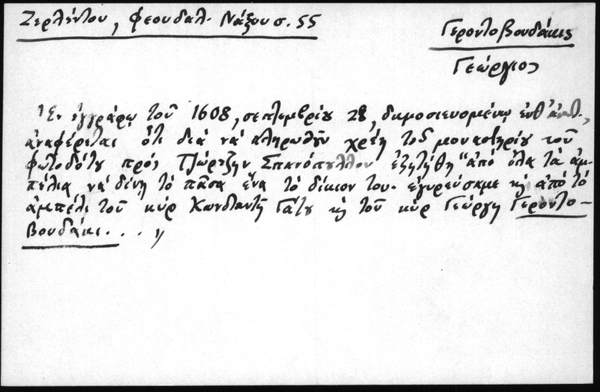 Ζερλέντου, Φεουδαλ. Νάξου σ. 55
Γεροντοβουδάκις
Γεώργιος
Ἐν ἐγγράφῳ τοῦ 1608, σεπτεμβρίου 28, δημοσιευομένῳ ἐνθ' ἀνωτ.,
ἀναφέρεται ὅτι διὰ νὰ πληρωθῇν χρέη τοῦ μοναστηρίου τοῦ
Φωτοδότη πρὸς Τζώρτζην Σπανόπουλλον ἐζητήθη "ἀπὸ ὅλα τὰ ἀμ-
πέλια νὰ δίνῃ τὸ πᾶσα ἕνα τὸ δίκιον του. ἐγυρεύσαμε κ̀ ἀπὸ τὸ
ἀμπέλι τοῦ κὺρ Κωνσταντῆ κ̀ τοῦ κὺρ Γεώργη Γεροντο-
βουδάκι . . . "